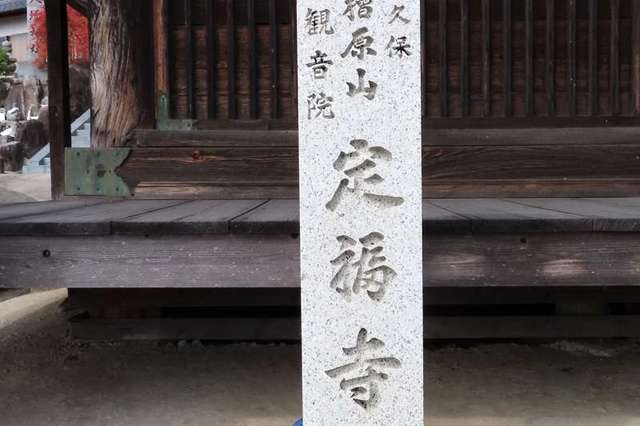 久保
檜原山
観音院
定福寺